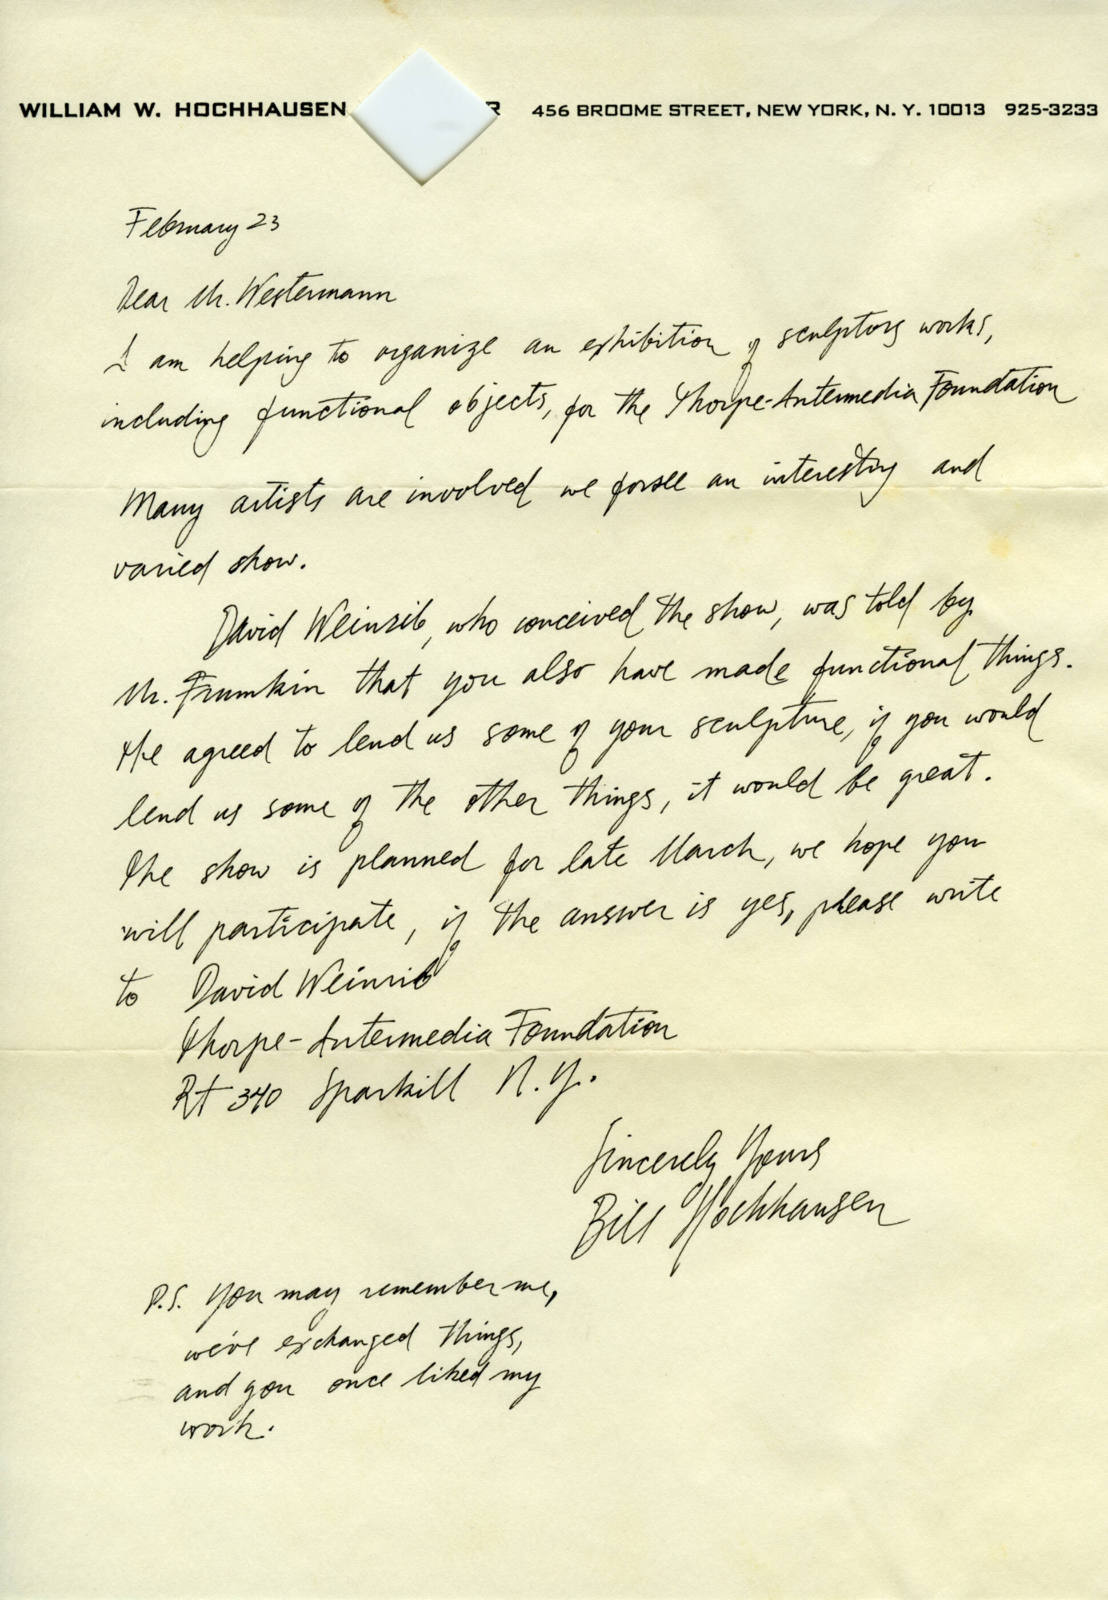 WILLIAM W. HOCHHAUSEN R 456 BROOME STREET, NEW YORK, N. Y. 10013 925-3233
February 23
Dear Mr. Westermann
I am helping to organize an exhibition of sculptors works,
including functional objects, for the Thorpe-Intermedia Foundation
Many artists are involved we forsee an interesting and
varied show.
David Weinrib, who conceived the show, was told by
Mr. Frumkin that you also have made functional things.
He agreed to lend us some of your sculpture, if you would
lend us some of the other things, it would be great.
The show is planned for late March, we hope you
will participate, if the answer is yes, please write
to David Weinrib
Thorpe-Intermedia Foundation
Rt 340 Sparkill N.Y.
Sincerely Yours
Bill Hochhausen
P.S. You may remember me,
we've exchanged things,
and you once liked my
work.